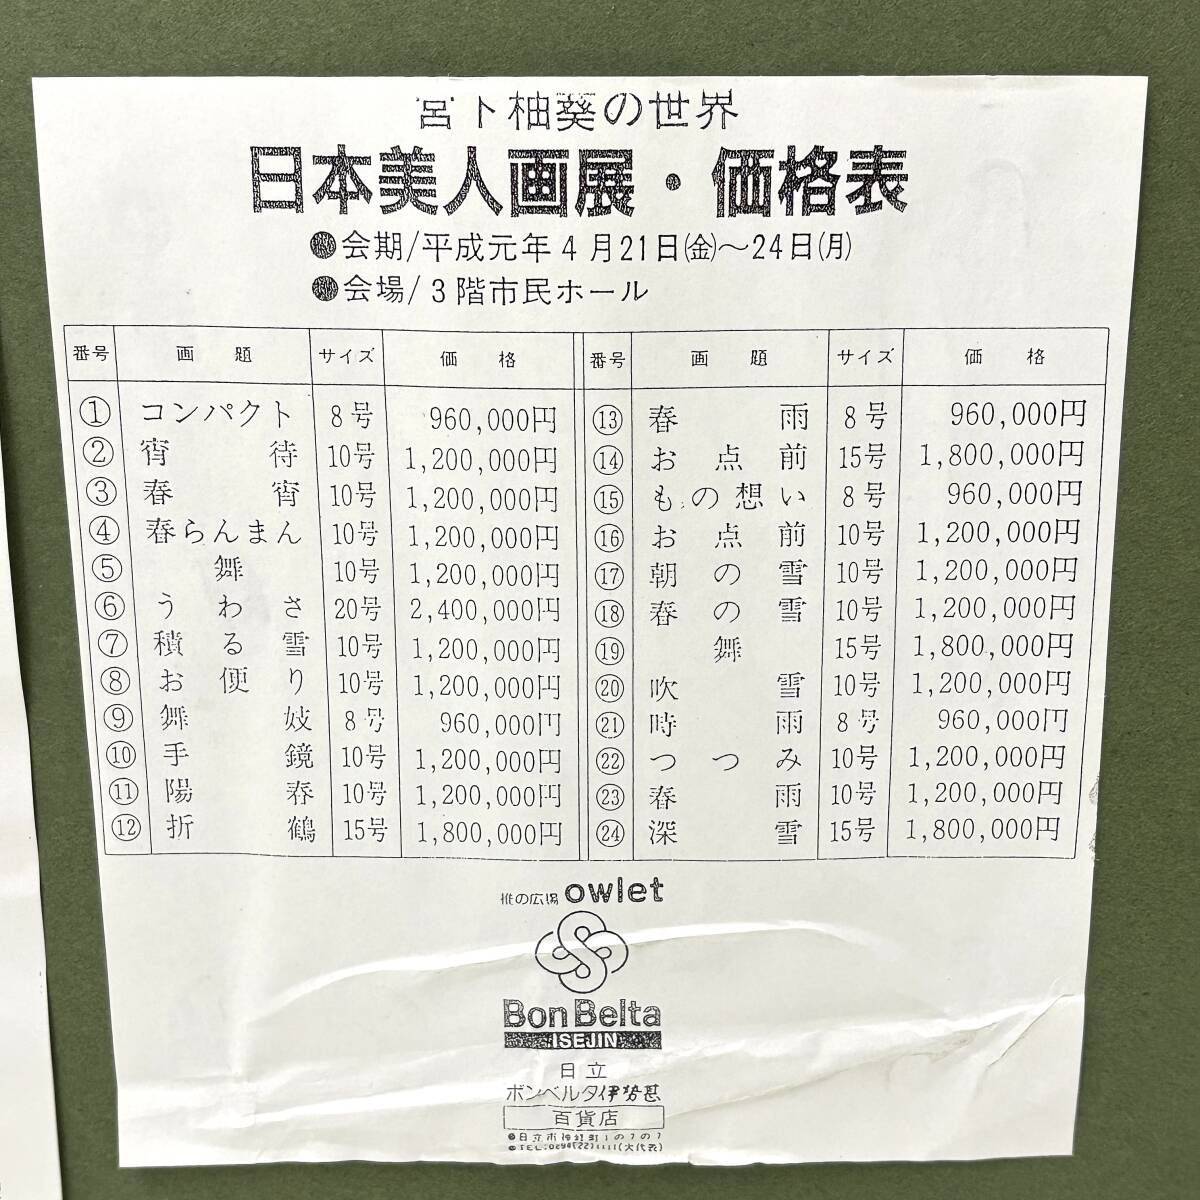 宮下柚葵の世界
日本美人画展・価格表
●会期/平成元年4月21日㈮~24日㈪
●会場/3階市民ホール
番号 画題 サイズ 価格
① コンパクト 8号 960,000円
② 宵待 10号 1,200,000円
③ 春宵 10号 1,200,000円
④ 春らんまん 10号 1,200,000円
⑤ 舞 10号 1,200,000円
⑥ うわさ 20号 2,400,000円
⑦ 積る雪 10号 1,200,000円
⑧ お便り 10号 1,200,000円
⑨ 舞妓 8号 960,000円
⑩ 手鏡 10号 1,200,000円
⑪ 陽春 10号 1,200,000円
⑫ 折鶴 15号 1,800,000円
番号 画題 サイズ 価格
⑬ 春雨 8号 960,000円
⑭ お点前 15号 1,800,000円
⑮ もの想い 8号 960,000円
⑯ お点前 10号 1,200,000円
⑰ 朝の雪 10号 1,200,000円
⑱ 春の雪 10号 1,200,000円
⑲ 舞 15号 1,800,000円
⑳ 吹雪 10号 1,200,000円
㉑ 時雨 8号 960,000円
㉒ つつみ 10号 1,200,000円
㉓ 春雨 10号 1,200,000円
㉔ 深雪 15号 1,800,000円
の広場 owlet
Bon Belta
ISEJIN
日立
ボンベルタ伊勢甚
百貨店
●日立市神峰町1の7の7
●TEL:0294(22)1111(大代表)